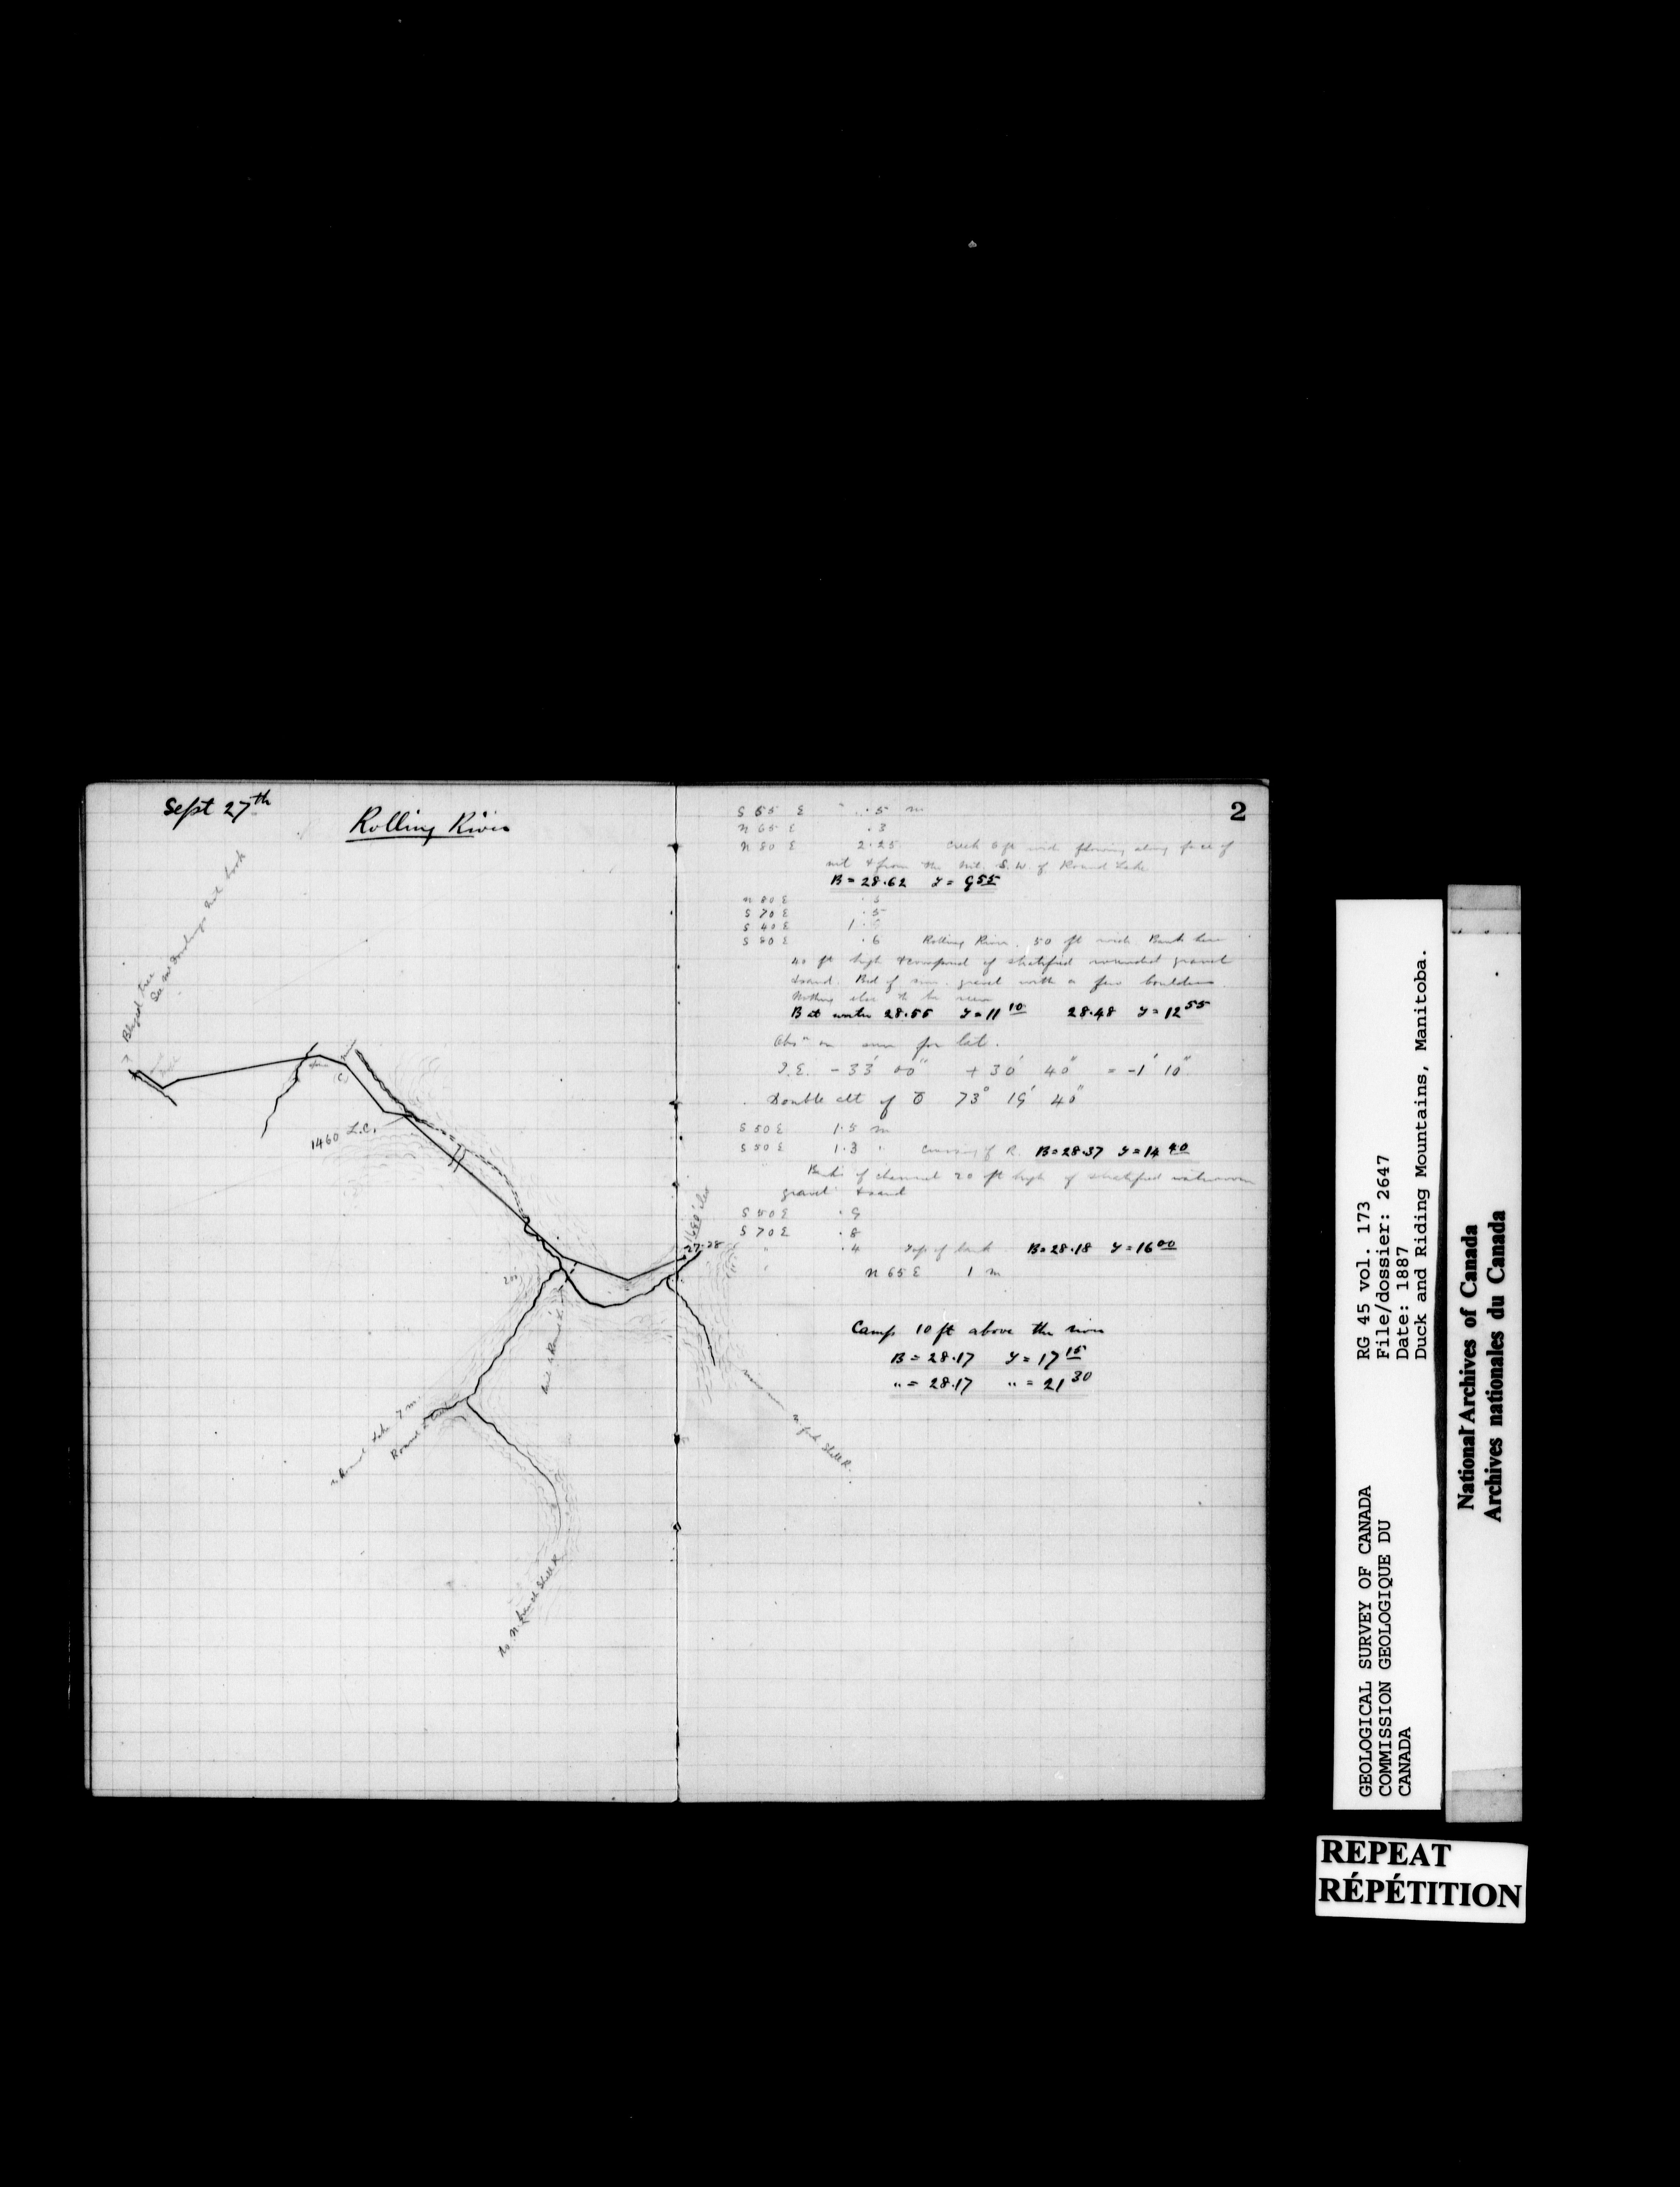 Sept 27th
Rolling River
Blazed tree
See McDowling's note book
1460 L.C.
1680' lev
27-28
Round Lake 7 m
Round L. Creek
to N. Branch Shell R.
Shell R.
2
S 55 E .5 m
N 65 E .3
N 80 E 2.25 Creek 6 ft wide flowing along face of
mt & from the mt. S.W. of Round Lake
B = 28.62 T = 9 55
N 80 E
S 70 E .5
S 40 E
S 80 E .6 Rolling River. 50 ft wide. Bank here
40 ft high & composed of stratified rounded gravel
& sand. Bed of river gravel with a few boulders.
Nothing else to be seen
B at water 28.55 T = 11 10 28.48 T = 12 55
Obsn on sun for lat.
I.E. - 33' 00" + 30' 40" = - 1' 10"
Double alt of 73° 19' 40"
S 50 E 1.5 m
S 50 E 1.3 " Crossing of R. B = 28.37 T = 14 40
Banks of channel 20 ft high of stratified waterworn
gravel & sand
S 50 E .9
S 70 E .8
" .4 Top of bank B = 28.18 T = 16 00
N 65 E 1 m
Camp 10 ft above the river
B = 28.17 T = 17 15
" = 28.17 " = 21 30
RG 45 vol. 173
File/dossier: 2647
Date: 1887
Duck and Riding Mountains, Manitoba.
GEOLOGICAL SURVEY OF CANADA
COMMISSION GEOLOGIQUE DU
CANADA
National Archives of Canada
Archives nationales du Canada
REPEAT
RÉPÉTITION